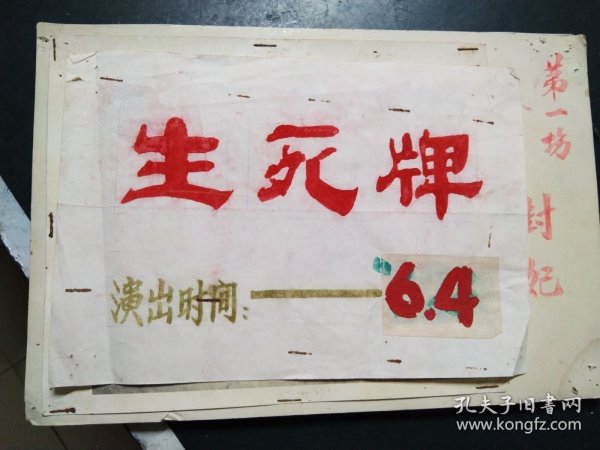 生死牌
演出时间：
6.4
第一场
封妃
孔夫子旧书网
www.kongfz.com